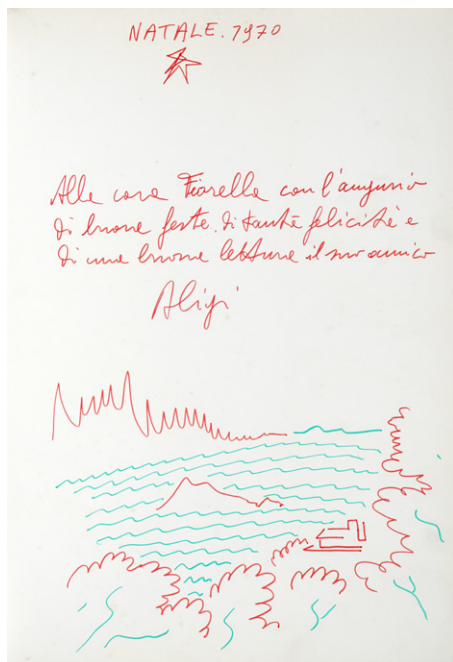 NATALE. 1970
Alla cara Fiorella con l'augurio
di buone feste, di tanta felicità e
di una buona lettura il suo amico
Aligi